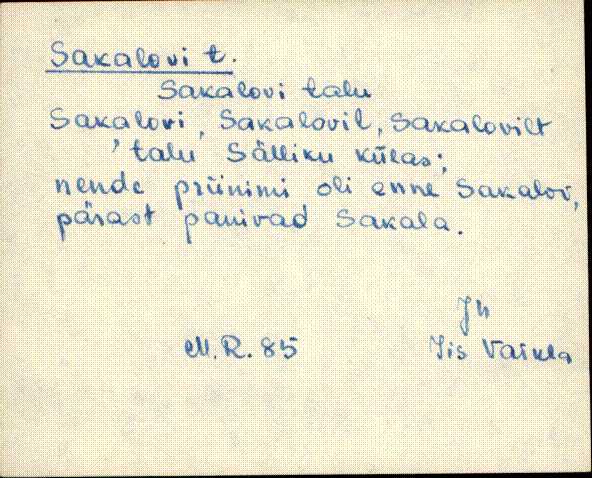 Sakalovi t.
Sakalovi talu
Sakalovi, Sakalovil, Sakalovilt
'talu Sälliku külas;
nende priinimi oli enne Sakalov,
pärast panivad Sakala.
M.R. 85
Iis Vaikla